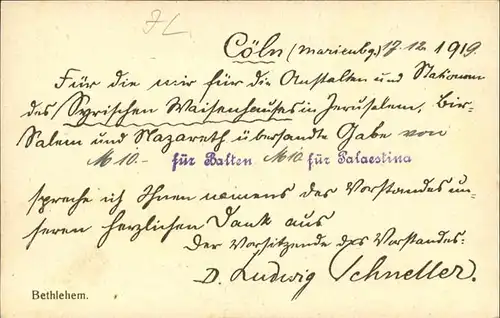 Cöln (Marienbg.) 17.12.1919
Für die mir für die Anstalten und Stationen
des Syrischen Waisenhauses in Jerusalem, Bir-
Salem und Nazareth übersandte Gabe von
M 10.- für Balten M 10 für Palaestina
spreche ich Ihnen namens des Vorstandes un-
seren herzlichen Dank aus
Der Vorsitzende des Vorstandes:
D. Ludwig Schneller.
Bethlehem.